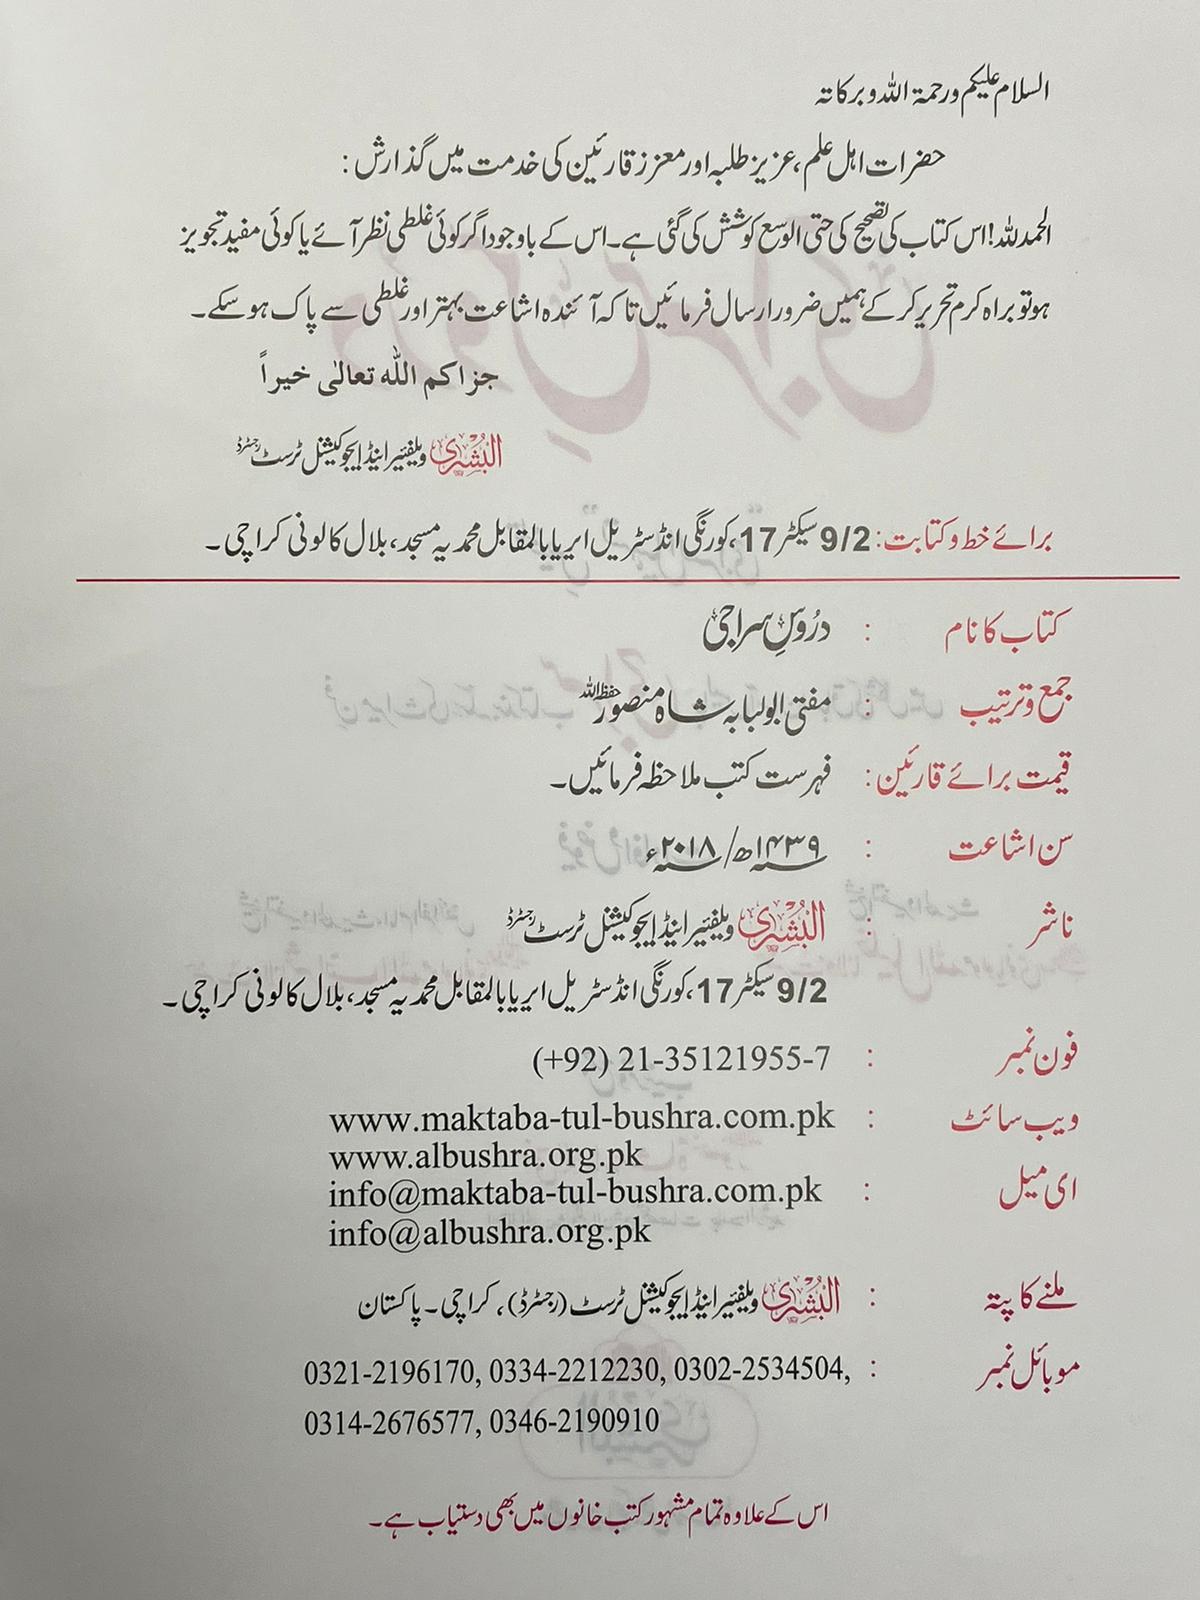 السلام علیکم ورحمۃ اللہ وبرکاتہ
حضرات اہل علم، عزیز طلبہ اور معزز قارئین کی خدمت میں گذارش:
الحمدللہ! اس کتاب کی تصحیح کی حتی الوسع کوشش کی گئی ہے۔ اس کے باوجود اگر کوئی غلطی نظر آئے یا کوئی مفید تجویز
ہو تو براہ کرم تحریر کر کے ہمیں ضرور ارسال فرمائیں تاکہ آئندہ اشاعت بہتر اور غلطی سے پاک ہو سکے۔
جزاکم اللہ تعالٰی خیراً
البُشریٰ ویلفیئر اینڈ ایجوکیشنل ٹرسٹ رجسٹرڈ
برائے خط و کتابت: 9/2 سیکٹر 17، کورنگی انڈسٹریل ایریا بالمقابل محمدیہ مسجد، بلال کالونی کراچی۔
کتاب کا نام : دُروسِ سراجی
جمع و ترتیب : مفتی ابولبابہ شاہ منصور حفظہ اللہ
قیمت برائے قارئین: فہرست کتب ملاحظہ فرمائیں۔
سن اشاعت : ۱۴۳۹ھ/ ۲۰۱۸ء
ناشر : البُشریٰ ویلفیئر اینڈ ایجوکیشنل ٹرسٹ رجسٹرڈ
9/2 سیکٹر 17، کورنگی انڈسٹریل ایریا بالمقابل محمدیہ مسجد، بلال کالونی کراچی۔
فون نمبر : (+92) 21-35121955-7
ویب سائٹ : www.maktaba-tul-bushra.com.pk
www.albushra.org.pk
ای میل : info@maktaba-tul-bushra.com.pk
info@albushra.org.pk
ملنے کا پتہ : البُشریٰ ویلفیئر اینڈ ایجوکیشنل ٹرسٹ (رجسٹرڈ)، کراچی۔ پاکستان
موبائل نمبر : 0321-2196170, 0334-2212230, 0302-2534504,
0314-2676577, 0346-2190910
اس کے علاوہ تمام مشہور کتب خانوں میں بھی دستیاب ہے۔